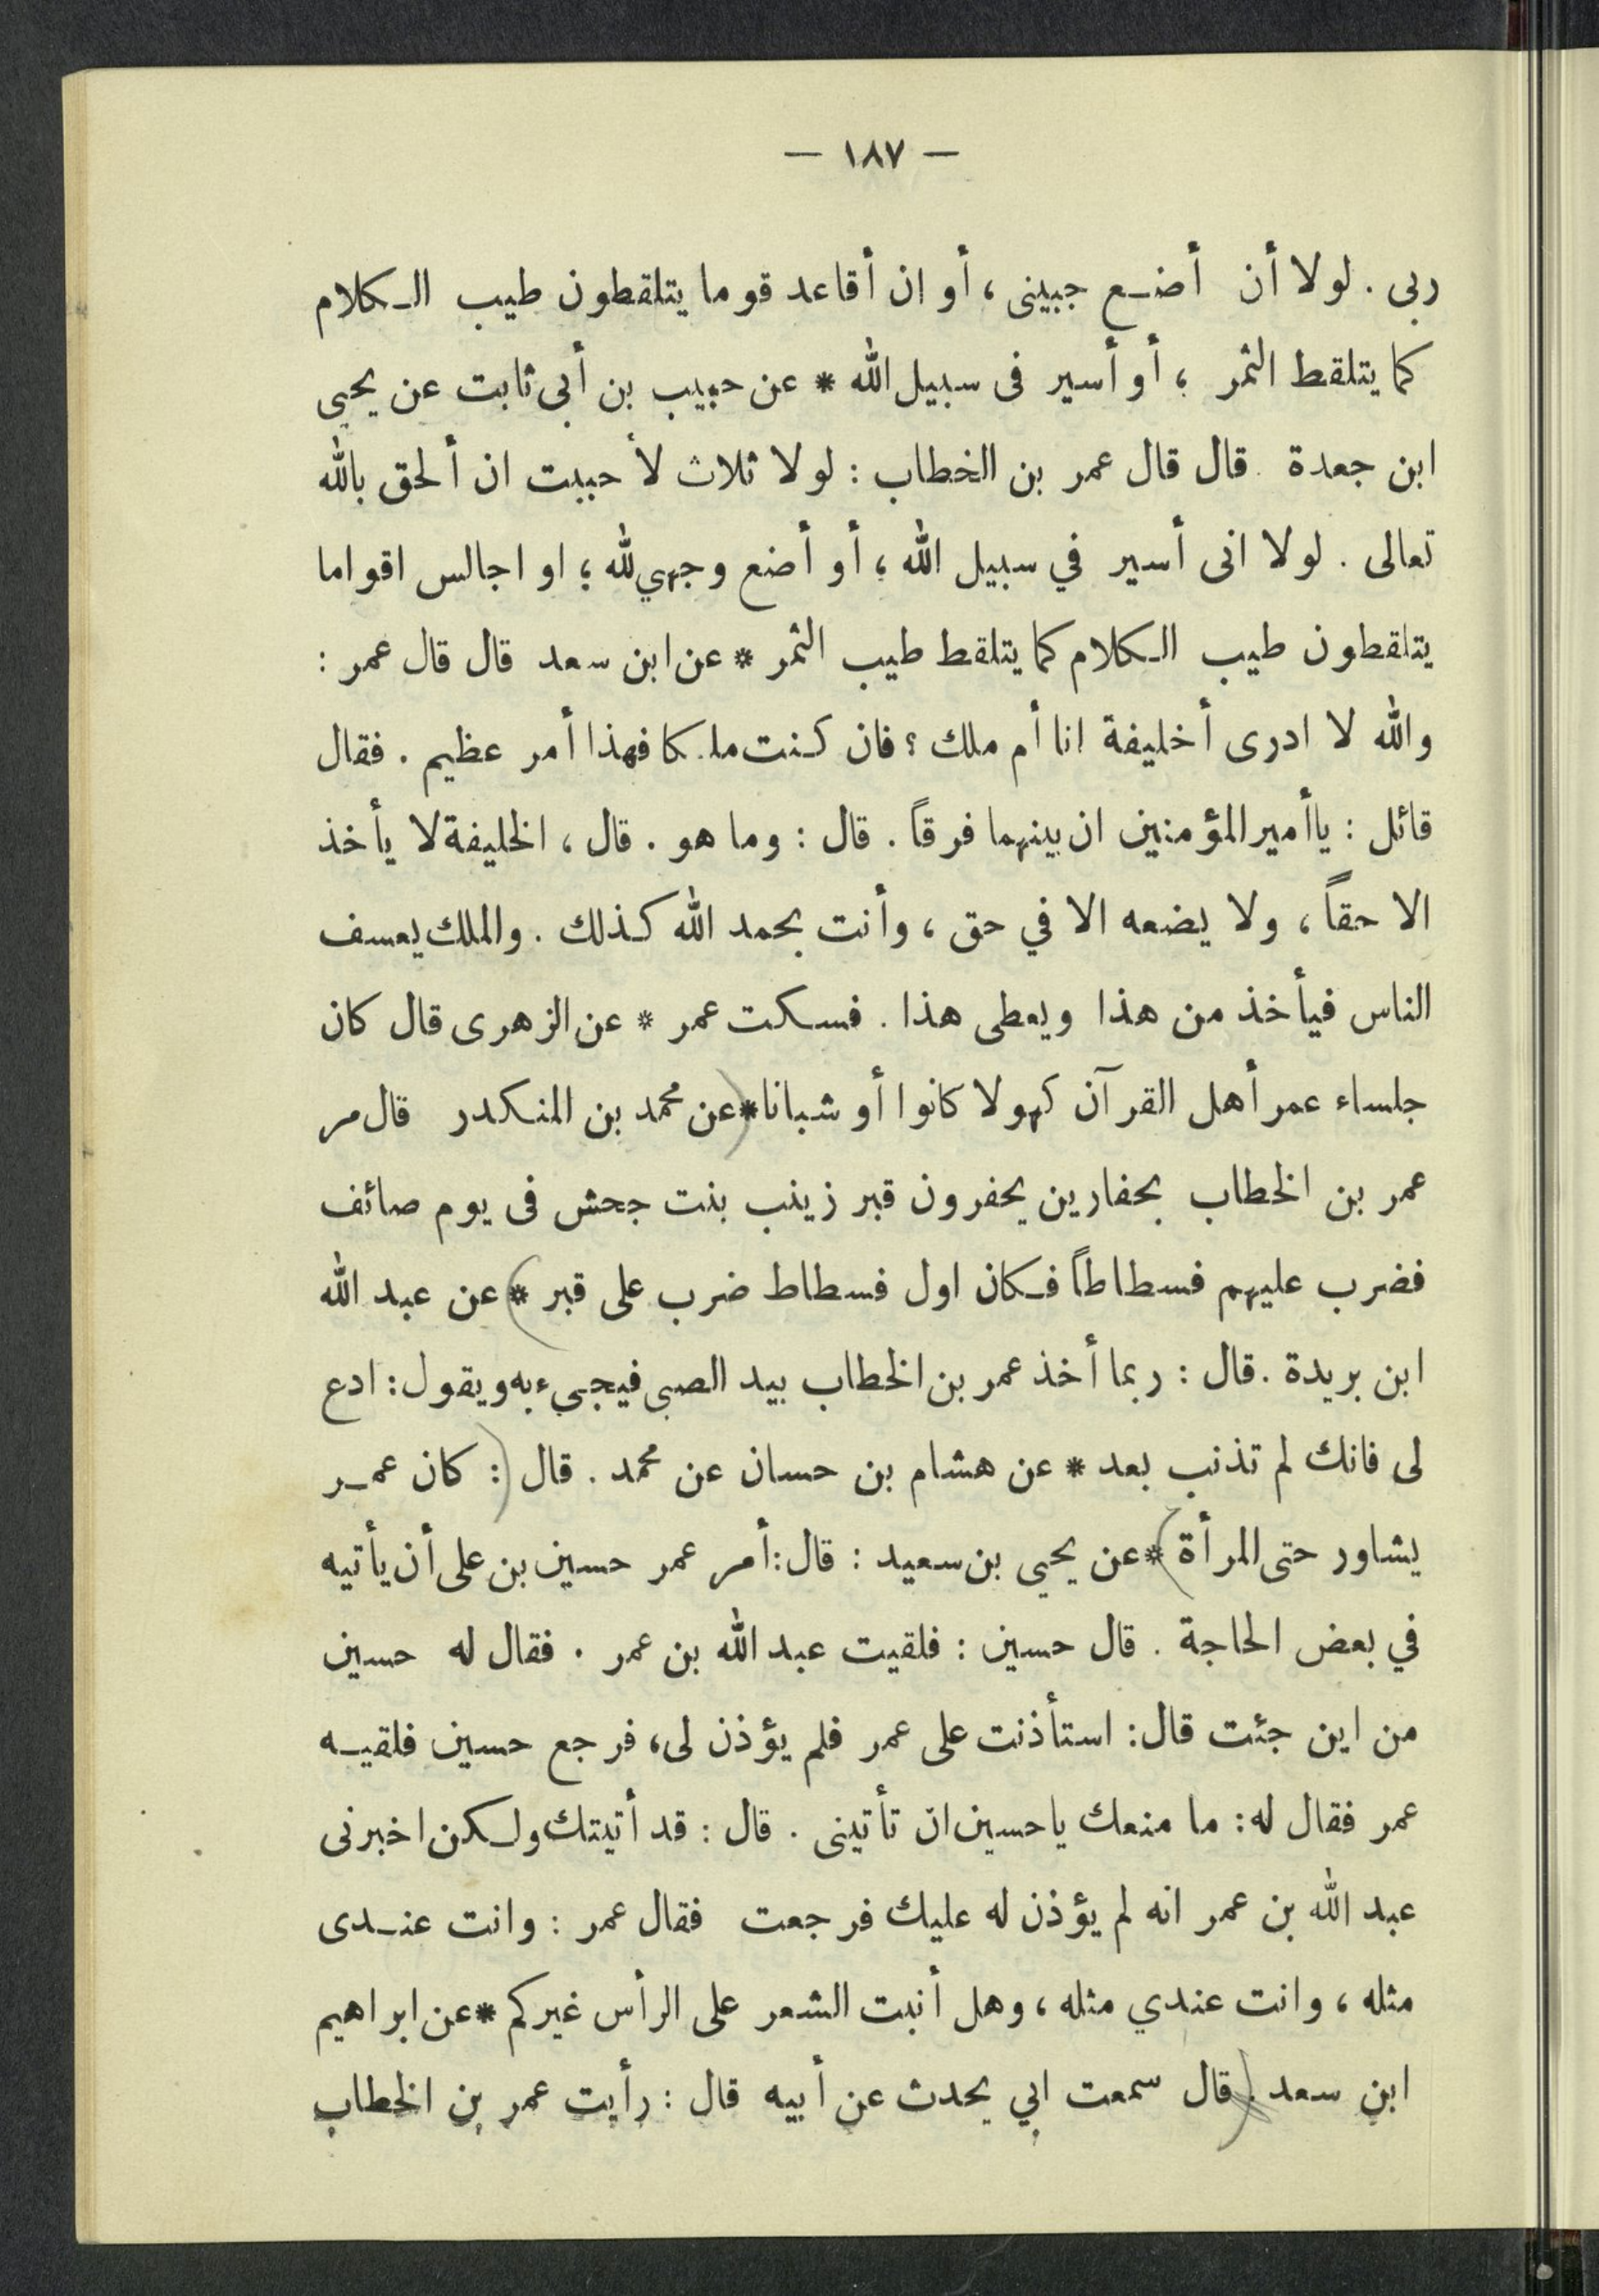 — ١٨٧ —
ربى . لولا أن أضع جبينى ، أو ان أقاعد قوما يتلقطون طيب الكلام
كما يتلقط الثمر ، أو أسير فى سبيل الله * عن حبيب بن أبى ثابت عن يحيى
ابن جعدة . قال قال عمر بن الخطاب : لولا ثلاث لأحببت ان ألحق بالله
تعالى . لولا انى أسير في سبيل الله ؛ أو أضع وجهي لله ؛ او اجالس اقواما
يتلقطون طيب الكلام كما يتلقط طيب الثمر * عن ابن سعد قال قال عمر :
والله لا ادرى أخليفة انا أم ملك ؟ فان كنت ملكا فهذا أمر عظيم . فقال
قائل : ياأمير المؤمنين ان بينهما فرقاً . قال : وما هو . قال ، الخليفة لا يأخذ
الا حقاً ، ولا يضعه الا في حق ، وأنت بحمد الله كذلك . والملك يعسف
الناس فيأخذ من هذا ويعطى هذا . فسكت عمر * عن الزهرى قال كان
جلساء عمر أهل القرآن كهولا كانوا أو شبانا * (عن محمد بن المنكدر قال مر
عمر بن الخطاب بحفارين يحفرون قبر زينب بنت جحش فى يوم صائف
فضرب عليهم فسطاطاً فكان اول فسطاط ضرب على قبر) * عن عبد الله
ابن بريدة . قال : ربما أخذ عمر بن الخطاب بيد الصبى فيجىء به ويقول : ادع
لى فانك لم تذنب بعد * عن هشام بن حسان عن محمد . قال (: كان عمر
يشاور حتى المرأة) * عن يحيى بن سعيد : قال : أمر عمر حسين بن على أن يأتيه
في بعض الحاجة . قال حسين : فلقيت عبد الله بن عمر . فقال له حسين
من اين جئت قال : استأذنت على عمر فلم يؤذن لى ، فرجع حسين فلقيه
عمر فقال له : ما منعك ياحسين ان تأتينى . قال : قد أتيتك ولكن اخبرنى
عبد الله بن عمر انه لم يؤذن له عليك فرجعت فقال عمر : وانت عندى
مثله ، وانت عندي مثله ، وهل أنبت الشعر على الرأس غيركم * عن ابراهيم
ابن سعد . (قال سمعت ابي يحدث عن أبيه قال : رأيت عمر بن الخطاب